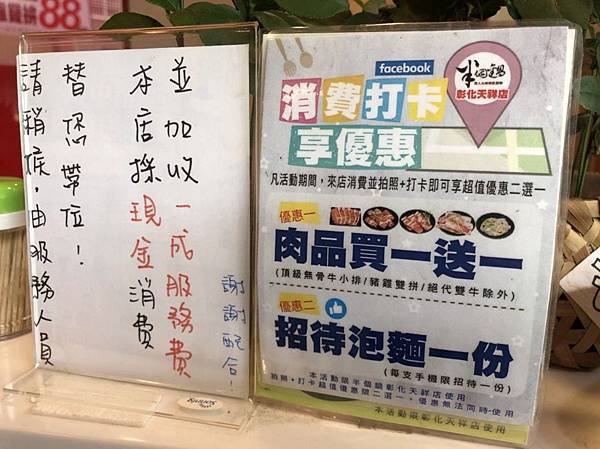 88
請稍候,由服務人員
替您帶位!
本店採現金消費
並加收一成服務費
謝謝配合!
facebook
消費打卡
享優惠
彰化天祥店
凡活動期間,來店消費並拍照+打卡即可享超值優惠二選一
優惠一
肉品買一送一
(頂級無骨牛小排/豬雞雙拼/絕代雙牛除外)
優惠二
招待泡麵一份
(每支手機限招待一份)
本活動限半個鍋彰化天祥店使用
拍照+打卡超值優惠限二選一,優惠無法同時使用
本活動限彰化天祥店使用